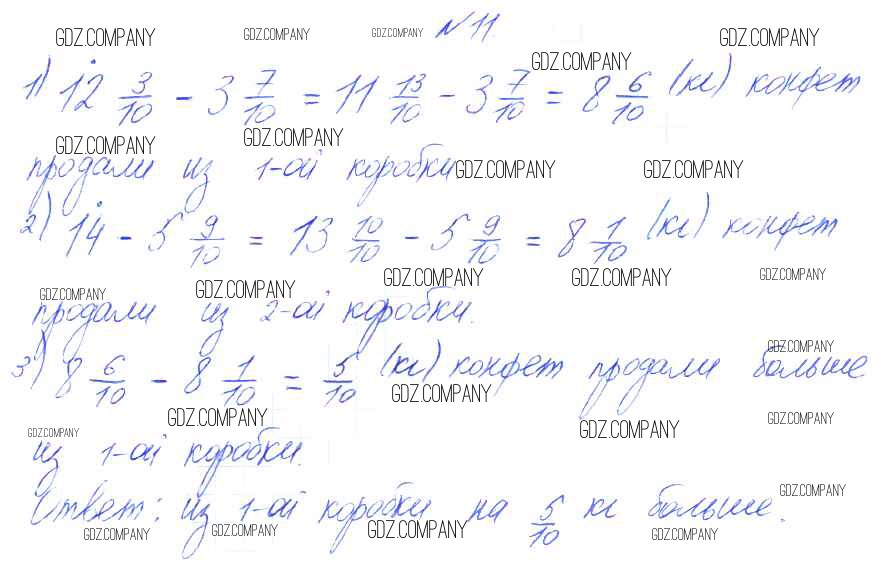 GDZ.COMPANY GDZ.COMPANY GDZ.COMPANY №11. GDZ.COMPANY
GDZ.COMPANY
1) 12 3/10 - 3 7/10 = 11 13/10 - 3 7/10 = 8 6/10 (кг) конфет
GDZ.COMPANY GDZ.COMPANY
продали из 1-ой коробки GDZ.COMPANY GDZ.COMPANY
2) 14 - 5 9/10 = 13 10/10 - 5 9/10 = 8 1/10 (кг) конфет
GDZ.COMPANY GDZ.COMPANY GDZ.COMPANY GDZ.COMPANY GDZ.COMPANY
продали из 2-ой коробки.
GDZ.COMPANY
3) 8 6/10 - 8 1/10 = 5/10 (кг) конфет продали больше
GDZ.COMPANY
GDZ.COMPANY GDZ.COMPANY GDZ.COMPANY GDZ.COMPANY
из 1-ой коробки.
GDZ.COMPANY
Ответ: из 1-ой коробки на 5/10 кг больше.
GDZ.COMPANY GDZ.COMPANY GDZ.COMPANY GDZ.COMPANY